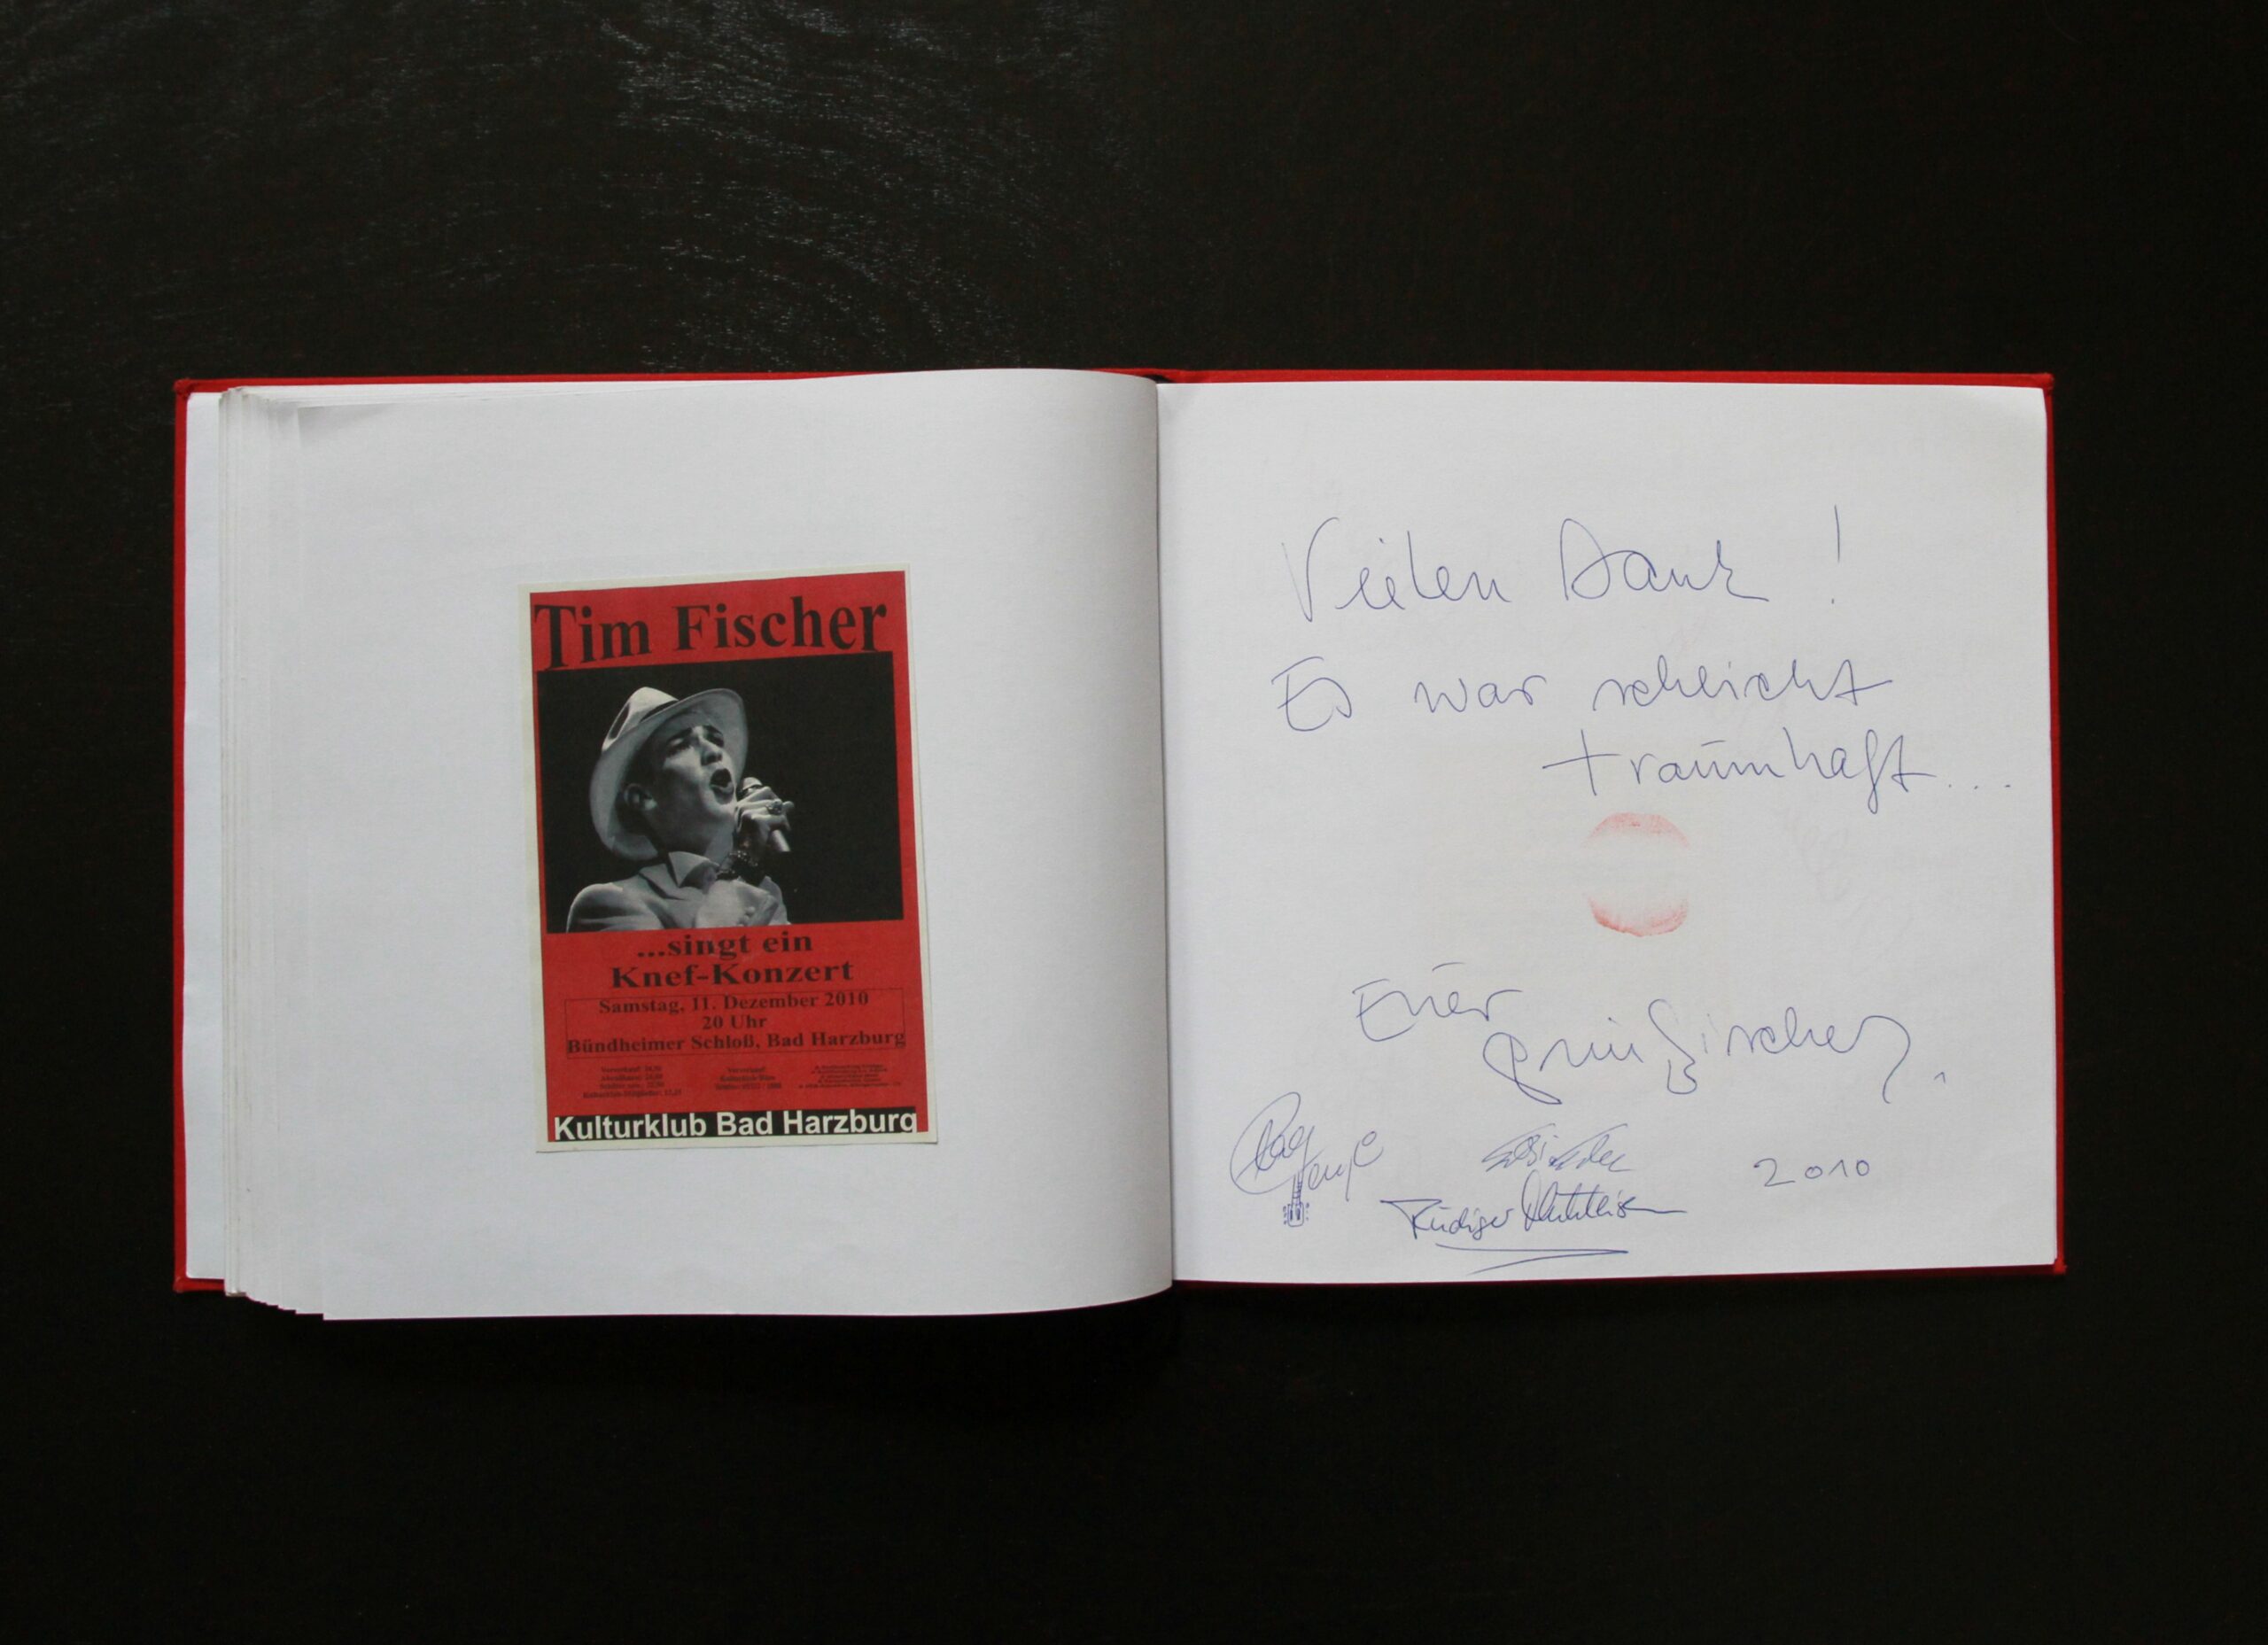 Tim Fischer
...singt ein
Knef-Konzert
Samstag, 11. Dezember 2010
20 Uhr
Bündheimer Schloß, Bad Harzburg
Kulturklub Bad Harzburg
Vielen Dank !
Es war schlicht
traumhaft...
Euer
Tim Fischer
2010
Rüdiger